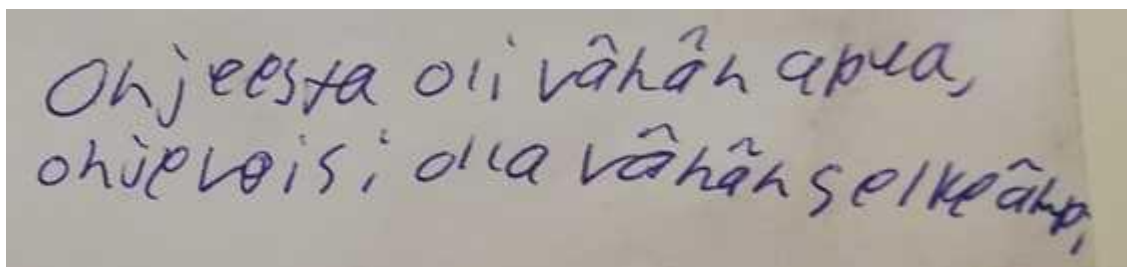 Ohjeesta oli vähän apua,
ohje voisi olla vähän selkeämpi,